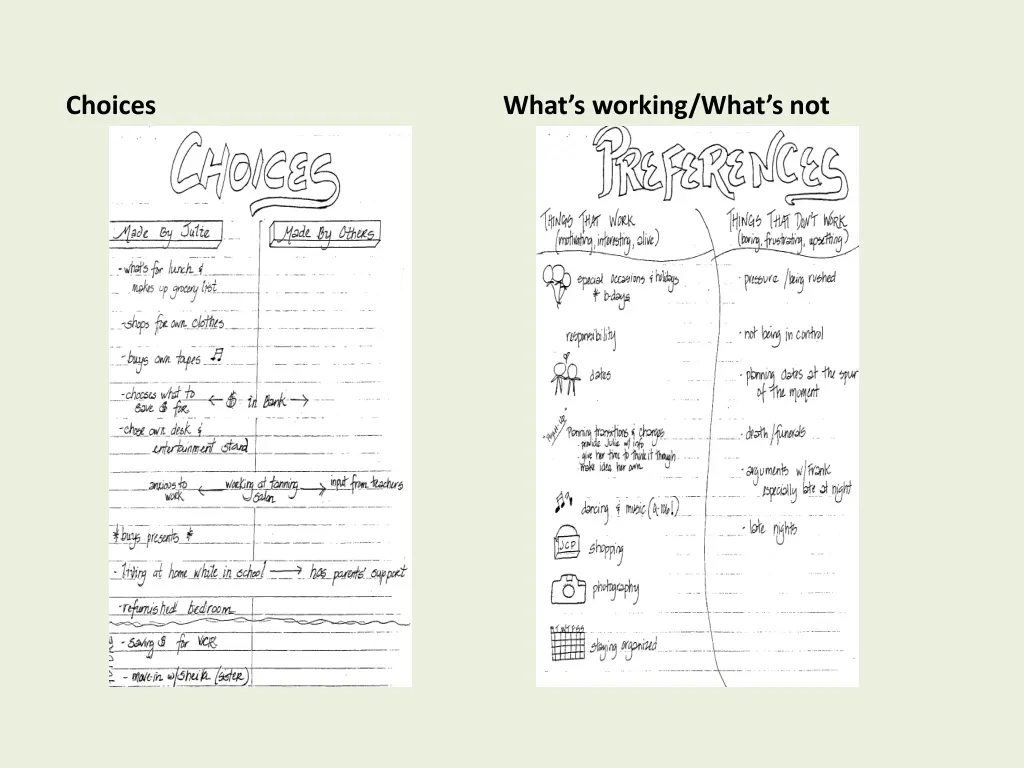 Choices
CHOICES
Made By Julie
Made By Others
-what's for lunch &
makes up grocery list
-shops for own clothes
-buys own tapes
-chooses what to
save $ for
← $ in bank →
-chose own desk &
entertainment stand
anxious to
work
← working at tanning →
salon
input from teachers
*buys presents *
- living at home while in school → has parents' support
-refurnished bedroom
- saving $ for VCR
- move in w/Sheila (sister)
What's working/What's not
PREFERENCES
THINGS THAT WORK
(motivating, interesting, alive)
THINGS THAT DON'T WORK
(boring, frustrating, upsetting)
special occasions & holidays
* b-days
responsibility
dates
Planning transitions & changes
- provide Julie w/ info
- give her time to think it through
make idea her own
dancing & music (Q-106!)
JCP
shopping
photography
M T W T F S S
staying organized
- pressure /being rushed
- not being in control
- planning dates at the spur
of the moment
- death/funerals
- arguments w/Frank
especially late at night
- late nights